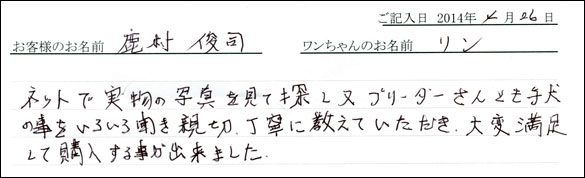 ご記入日 2014年 4月 26日
お客様のお名前 鹿村 俊司 ワンちゃんのお名前 リン
ネットで実物の写真を見て探し又ブリーダーさんとも子犬
の事をいろいろ聞き親切、丁寧に教えていただき、大変満足
して購入する事が出来ました。